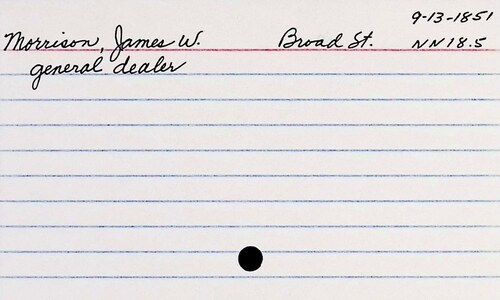 9-13-1851
Morrison, James W. Broad St. NN18.5
general dealer